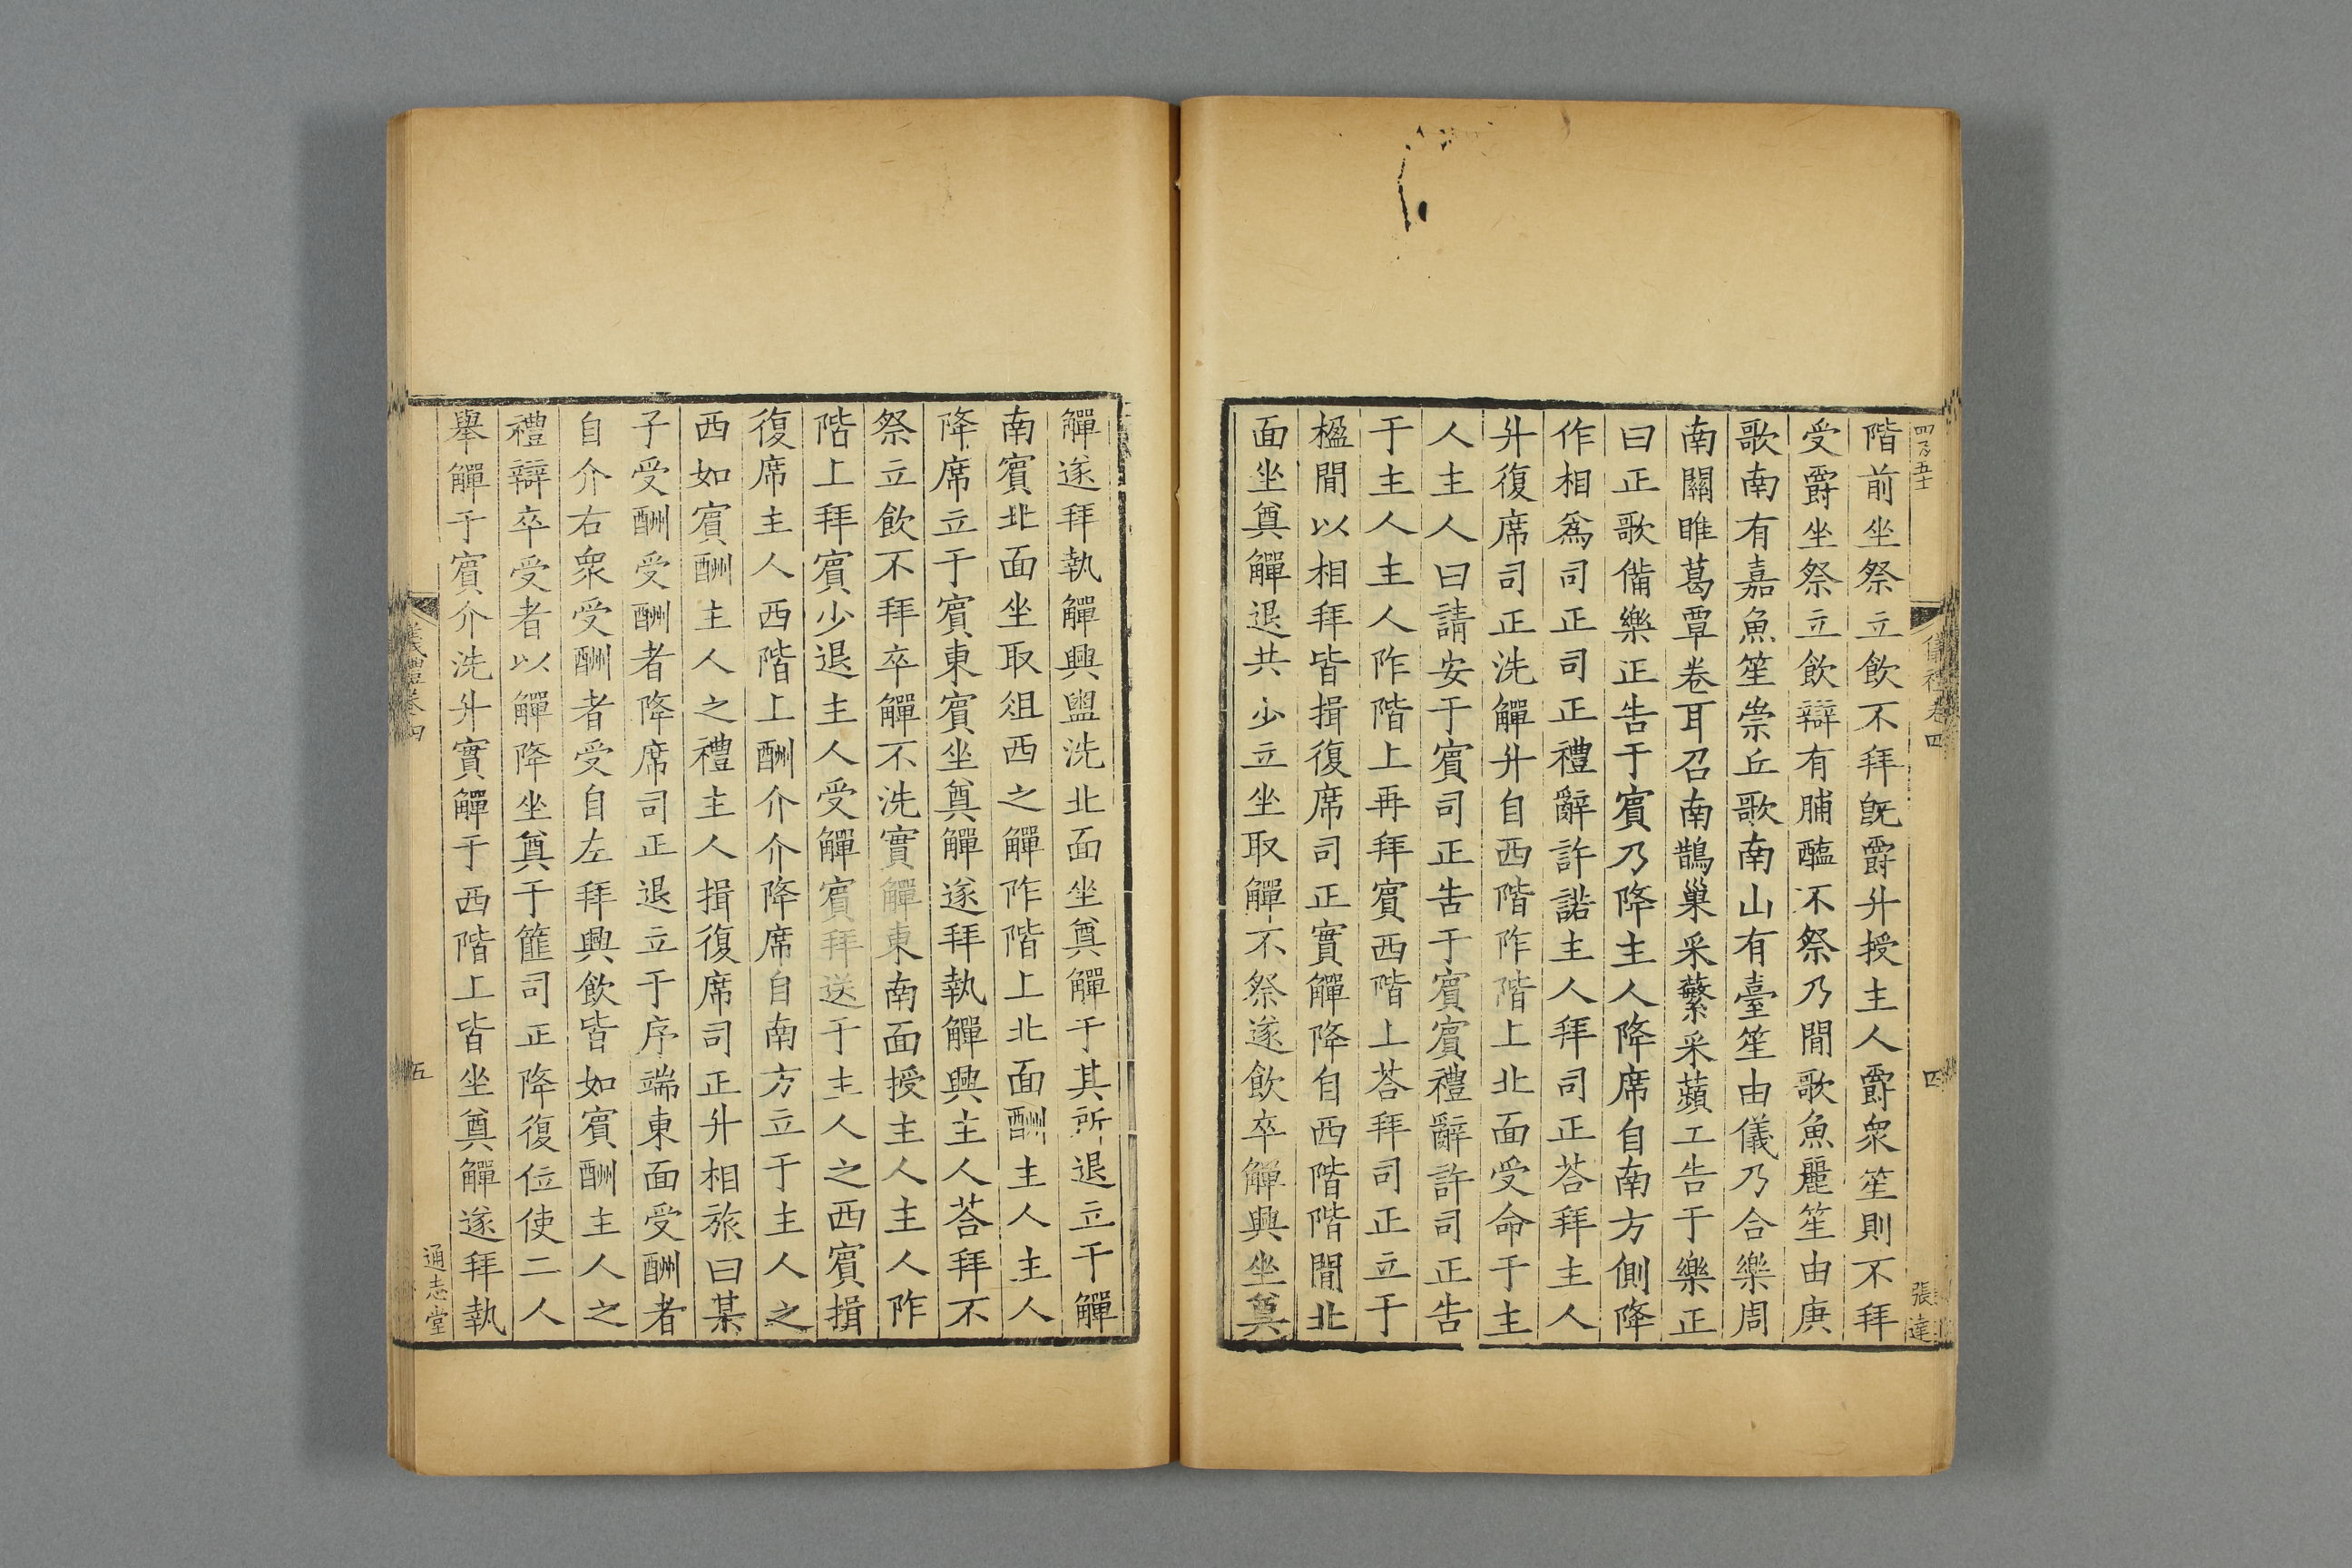 儀禮卷四
四
張達
階前坐祭立飲不拜旣爵升授主人爵衆笙則不拜
受爵坐祭立飲辯有脯醢不祭乃間歌魚麗笙由庚
歌南有嘉魚笙崇丘歌南山有臺笙由儀乃合樂周
南關雎葛覃卷耳召南鵲巢采蘩采蘋工告于樂正
曰正歌備樂正告于賔乃降主人降席自南方側降
作相爲司正司正禮辭許諾主人拜司正荅拜主人
升復席司正洗觶升自西階阼階上北面受命于主
人主人曰請安于賔司正告于賔賔禮辭許司正告
于主人主人阼階上再拜賔西階上荅拜司正立于
楹間以相拜皆揖復席司正實觶降自西階階間北
面坐奠觶退共少立坐取觶不祭遂飲卒觶興坐奠
觶遂拜執觶興盥洗北面坐奠觶于其所退立于觶
南賔北面坐取俎西之觶阼階上北面酬主人主人
降席立于賔東賔坐奠觶遂拜執觶興主人荅拜不
祭立飲不拜卒觶不洗實觶東南面授主人主人阼
階上拜賔少退主人受觶賔拜送于主人之西賔揖
復席主人西階上酬介介降席自南方立于主人之
西如賔酬主人之禮主人揖復席司正升相旅曰某
子受酬受酬者降席司正退立于序端東面受酬者
自介右衆受酬者受自左拜興飲皆如賔酬主人之
禮辯卒受者以觶降坐奠于篚司正降復位使二人
舉觶于賔介洗升實觶于西階上皆坐奠觶遂拜執
儀禮卷四
五
通志堂